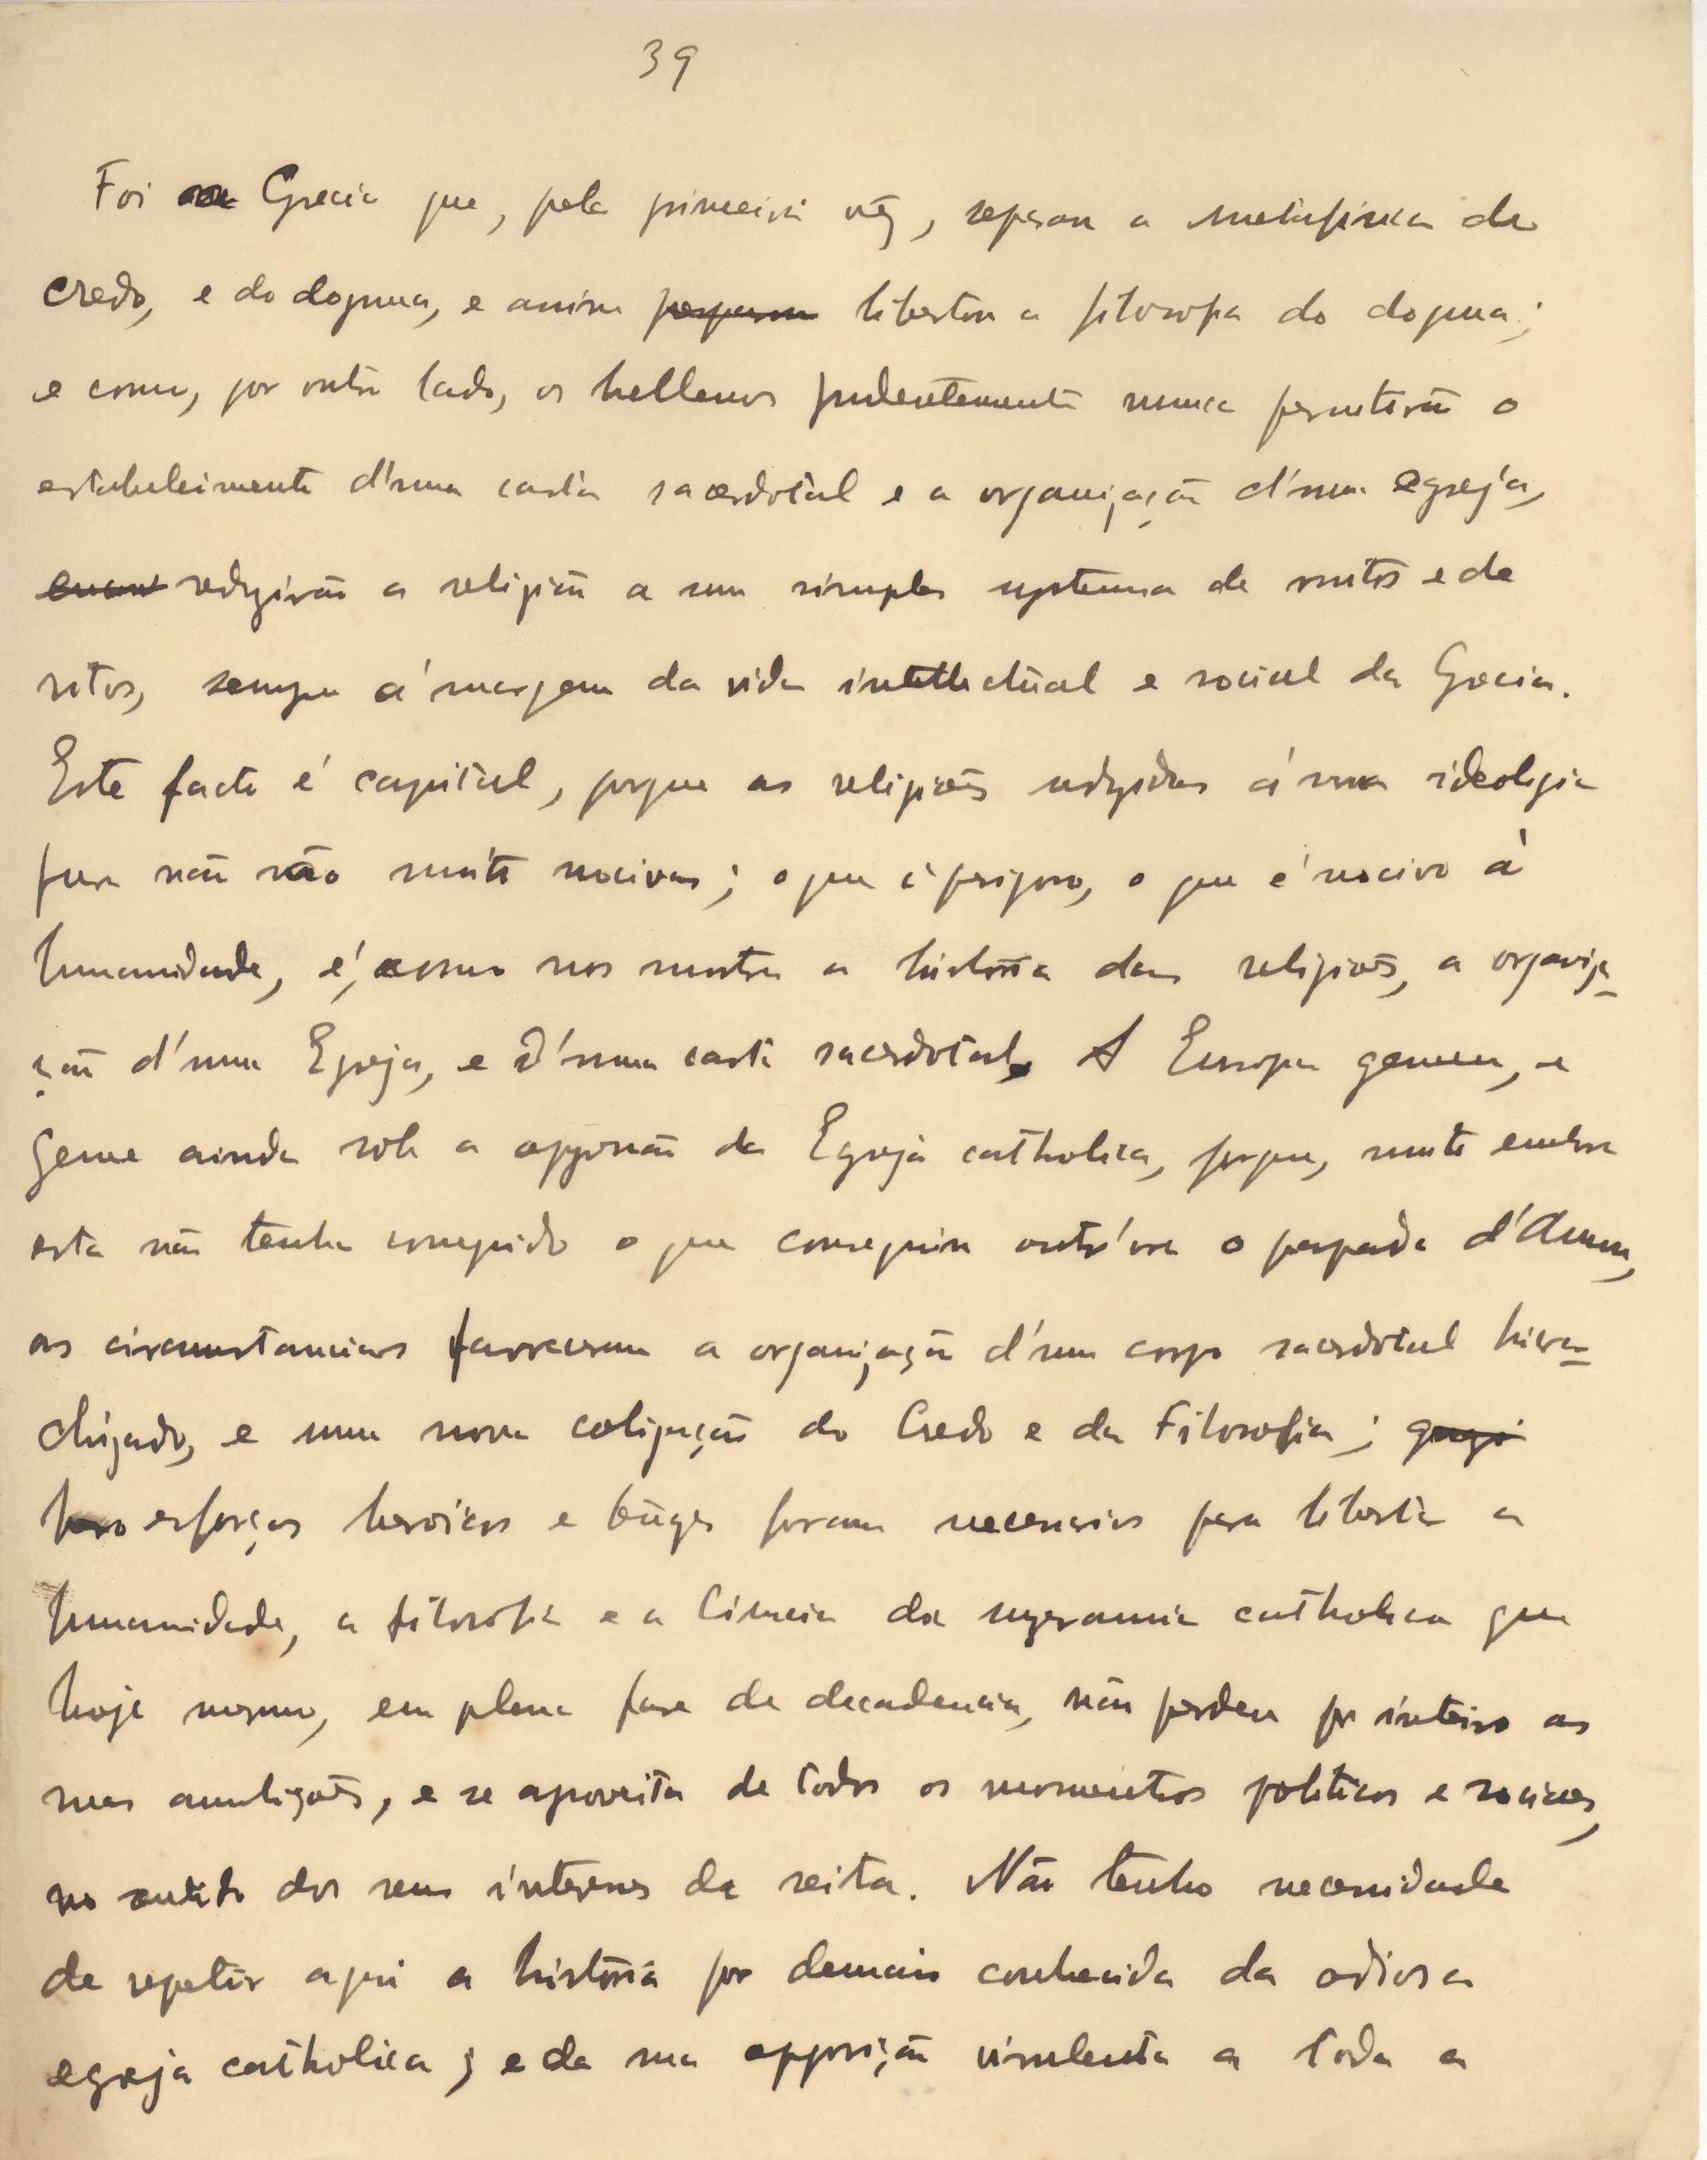 39
Foi a Grecia que, pela primeira vez, separou a metafisica do
credo, e do dogma, e assim libertou a filosofia do dogma;
e como, por outro lado, os hellenos prudentemente nunca permitirão o
estabelecimento d'uma casta sacerdotal e a organização d'uma egreja,
redugirão a religião a um simples systema de mitos e de
ritos, sempre á margem da vida intellectual e social da Grecia.
Este facto é capital, porque as religiões redugidas á uma ideologia
pura não são muito nocivas; o que é perigoso, o que é nocivo á
humanidade, é, como nos mostra a história das religiões, a organiza-
ção d'uma Egreja, e d'uma casta sacerdotal. A Europa gemeu, e
geme ainda sob a oppressão da Egreja catholica, porque, muito embora
esta não tenha conseguido o que conseguiu outr'ora o papado d'Amon,
as circumstancias favoreceram a organização d'um corpo sacerdotal hierar-
chizado, e uma nova coligação do Credo e da Filosofia;
esforços heroicos e foram necessarios para libertar a
humanidade, a filosofia e a Ciencia da catholica que
hoje mesmo, em plena fase de decadencia, não perdeu por inteiro as
suas ambições, e se aproveita de todos os momentos politicos e sociaes,
no sentido dos seus interesses de seita. Não tenho necessidade
de repetir aqui a história por demais conhecida da odiosa
egreja catholica; e da sua opposição virulenta a toda a